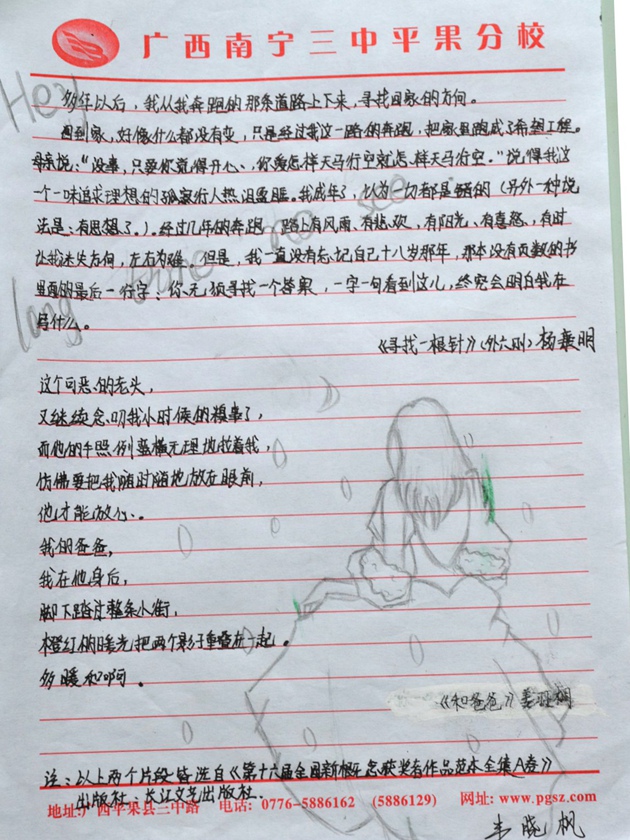 广西南宁三中平果分校
Hey
多年以后，我从我奔跑的那条道路上下来，寻找回家的方向。
回到家，好像什么都没有变，只是经过我这一路的奔跑，把家里跑成了希望工程。
母亲说："没事，只要你觉得开心、你爱怎样天马行空就怎样天马行空。"说得我这
个一味追求理想的孤家行人热泪盈眶。我成年了，以为一切都是错的（另外一种说
法是：有思想了。）。经过几年的奔跑，路上有风雨、有悲欢，有阳光、有喜怒，有时
让我迷失方向，左右为难。但是，我一直没有忘记自己十八岁那年，那本没有页数的书
里面的最后一行字：你无须寻找一个答案，一字一句看到这儿，终究会明白我在
写什么。
long time no see
《寻找一根针》（外六则）杨燕明
这个可恶的老头，
又继续念叨我小时候的糗事了，
而他的手照例蛮横无理地拉着我，
仿佛要把我随时随地放在眼前，
他才能放心。
我的爸爸，
我在他身后，
脚下踏过整条小街，
橙红的暖光把两个影子重叠在一起。
多暖和啊。
《和爸爸》姜亚桐
注：以上两个片段皆选自《第十六届全国新概念获奖者作品范本全集A卷》
出版社：长江文艺出版社．
地址：广西平果县三中路 电话：0776-5886162 (5886129) 网址：www.pgsz.com
韦晓帆